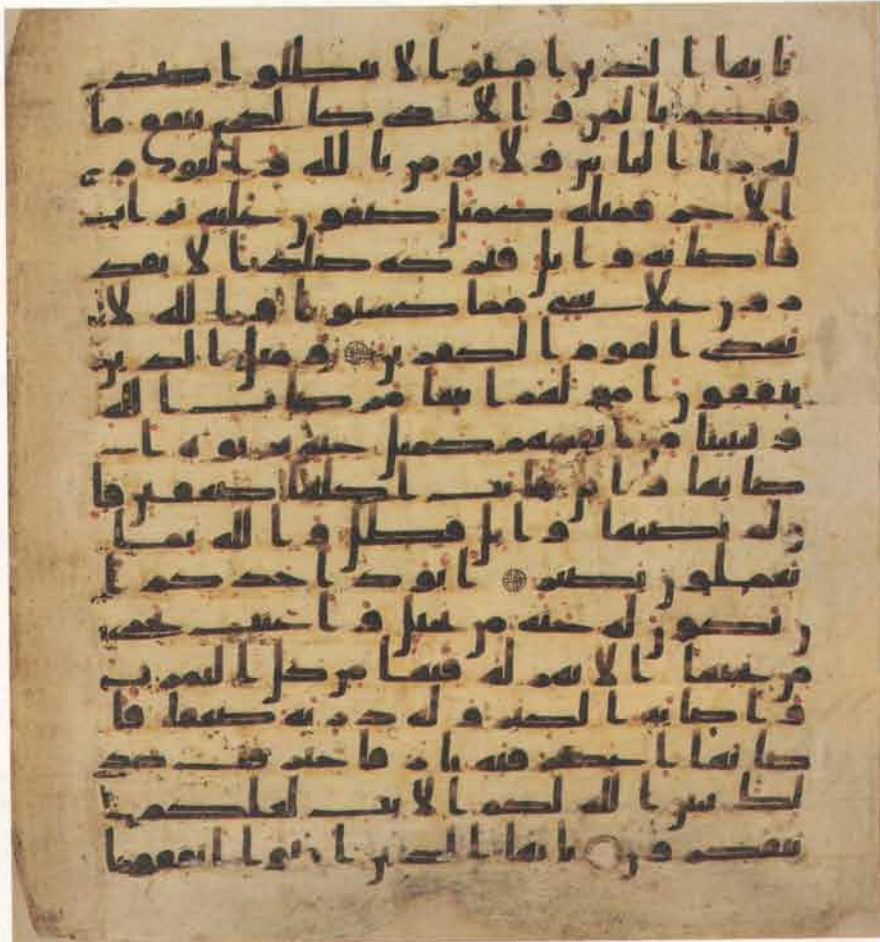 يايها الذين امنوا لا تبطلوا صد
قتكم بالمن والاذى كالذي ينفق ما
له رئا الناس ولا يومن بالله واليوم
الاخر فمثله كمثل صفون عليه تراب
فاصابه وابل فتركه صلدا لا يقد
رون على شي مما كسبوا والله لا
يهدي القوم الكفرين ومثل الذين
ينفقون امولهم ابتغا مرضات الله
وتثبيتا من انفسهم كمثل جنة بربوة ا
صابها وابل فاتت اكلها ضعفين فا
ن لم يصبها وابل فطل والله بما
تعملون بصير ايود احدكم ا
ن تكون له جنة من نخيل واعنب تجري
من تحتها الانهر له فيها من كل الثمرت
واصابه الكبر وله ذرية ضعفا فا
صابها اعصر فيه نار فاحترقت كذ
لك يبين الله لكم الايت لعلكم
تتفكرون يايها الذين امنوا انفقوا